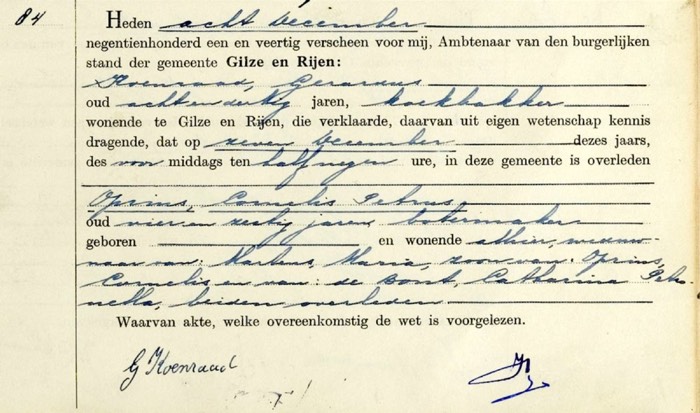 84
Heden acht December
negentienhonderd een en veertig verscheen voor mij, Ambtenaar van den burgerlijken
stand der gemeente Gilze en Rijen:
Koenraad, Gerardus
oud acht en dertig jaren, koekbakker
wonende te Gilze en Rijen, die verklaarde, daarvan uit eigen wetenschap kennis
dragende, dat op zeven December dezes jaars,
des voor middags ten half negen ure, in deze gemeente is overleden
Oprins, Cornelis Petrus
oud vier en zestig jaren botermaker
geboren en wonende alhier, weduw-
naar van: Martens, Maria, zoon van: Oprins,
Cornelis en van: de Bont, Catharina Petro-
nella, beiden overleden
Waarvan akte, welke overeenkomstig de wet is voorgelezen.
G Koenraad